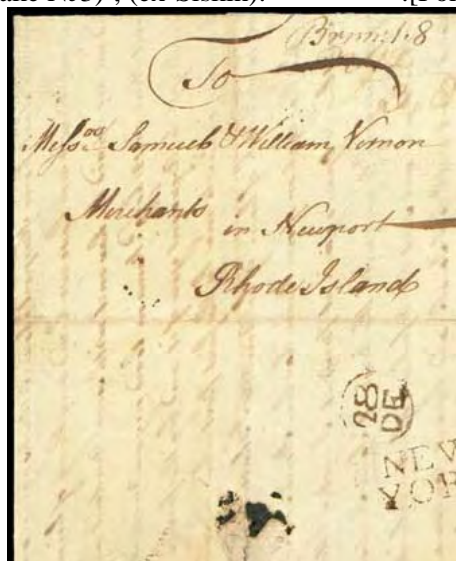 To
Mess.rs Samuel & William Vernon
Merchants
in Newport
Rhode Island
28
DE
NEW
YOR